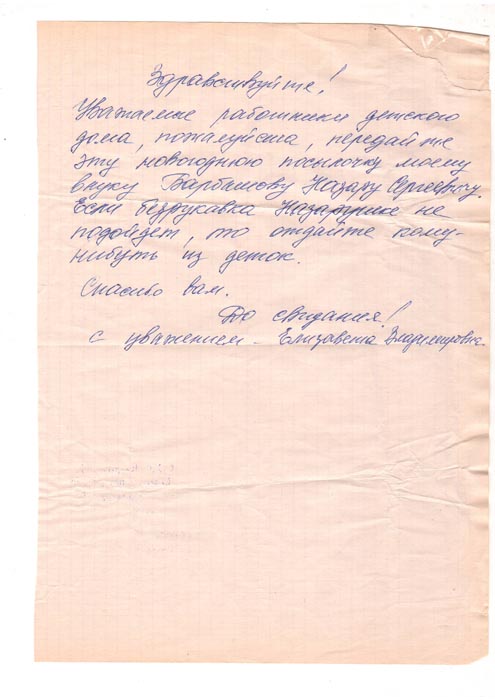 Здравствуйте!
Уважаемые работники детского
дома, пожалуйста, передайте
эту новогоднюю посылочку моему
внуку Назару Сергеевичу.
Если безрукавка не
подойдет, то отдайте кому-
нибуть из деток.
Спасибо вам.
До свидания!
с уважением - Елизавета Владимировна.